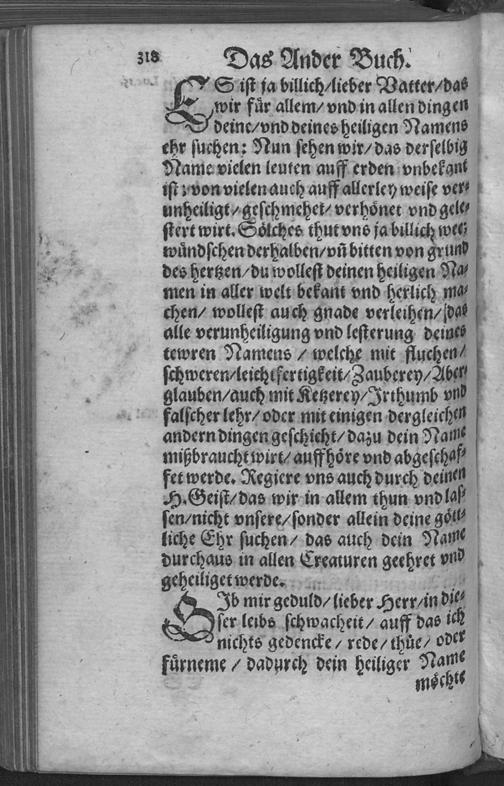 318 Das Ander Buch.
ES ist ja billich/ lieber Vatter/ das
wir für allem/ vnd in allen dingen
deine/ vnd deines heiligen Namens
ehr suchen: Nun sehen wir/ das derselbig
Name vielen leuten auff erden vnbekant
ist: von vielen auch auff allerley weise ver-
unheiligt/ geschmehet/ verhönet vnd gele-
stert wirt. Sölches thut vns ja billich weh:
wündschen derhalben/ vñ bitten von grund
des hertzen/ du wollest deinen heiligen Na-
men in aller welt bekant vnd herlich ma-
chen/ wollest auch gnade verleihen/ das
alle verunheiligung vnd lesterung deines
tewren Namens / welche mit fluchen/
schweren/ leichtfertigkeit/ Zauberey/ Aber-
glauben/ auch mit Ketzerey/ Irthumb vnd
falscher lehr/ oder mit einigen dergleichen
andern dingen geschicht/ dazu dein Name
mißbraucht wirt/ auffhöre vnd abgeschaf-
fet werde. Regiere vns auch durch deinen
H. Geist/ das wir in allem thun vnd las-
sen/ nicht vnsere/ sonder allein deine gött-
liche Ehr suchen/ das auch dein Name
durchaus in allen Creaturen geehret vnd
geheiliget werde.
GIb mir geduld/ lieber Herr/ in die-
ser leibs schwacheit/ auff das ich
nichts gedencke/ rede/ thüe/ oder
fürneme / dadurch dein heiliger Name
möchte